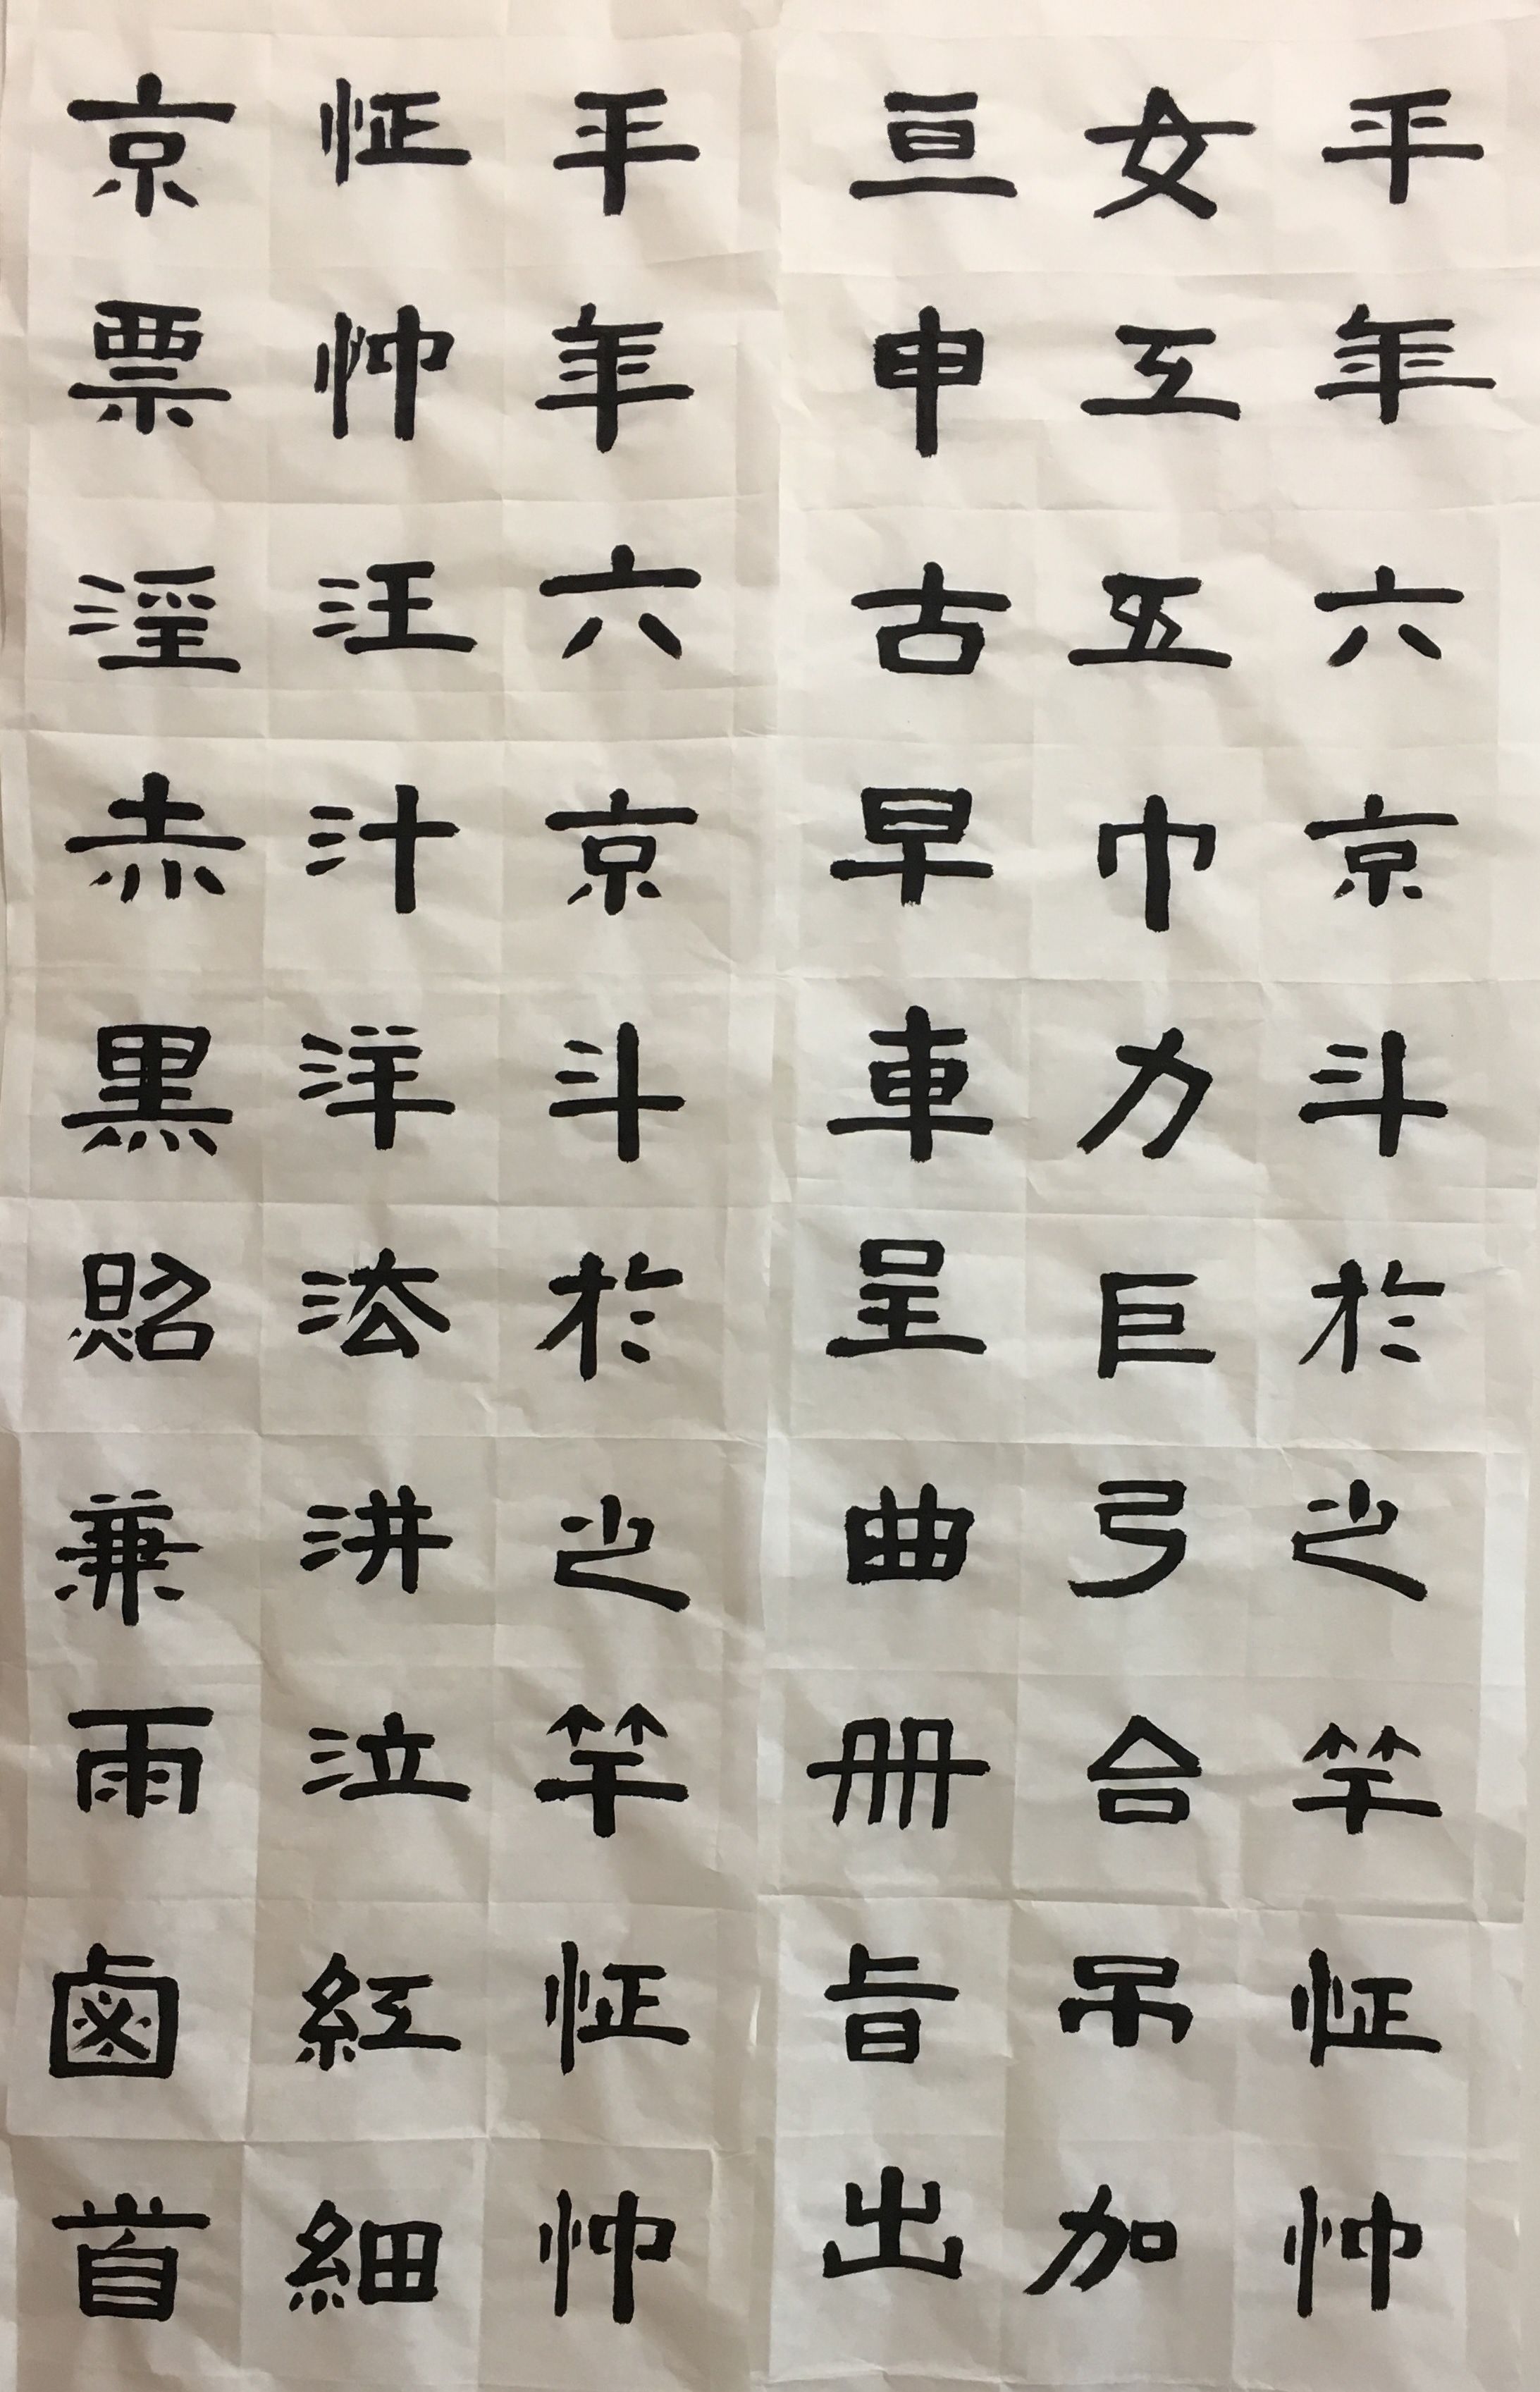 平年六京斗於之竿怔忡
女工五巾力巨弓合吊加
亘申古早車呈曲册旨出
平年六京斗於之竿怔忡
怔忡汪汁洋法汫泣紅細
京票淫赤黑照兼雨鹵首